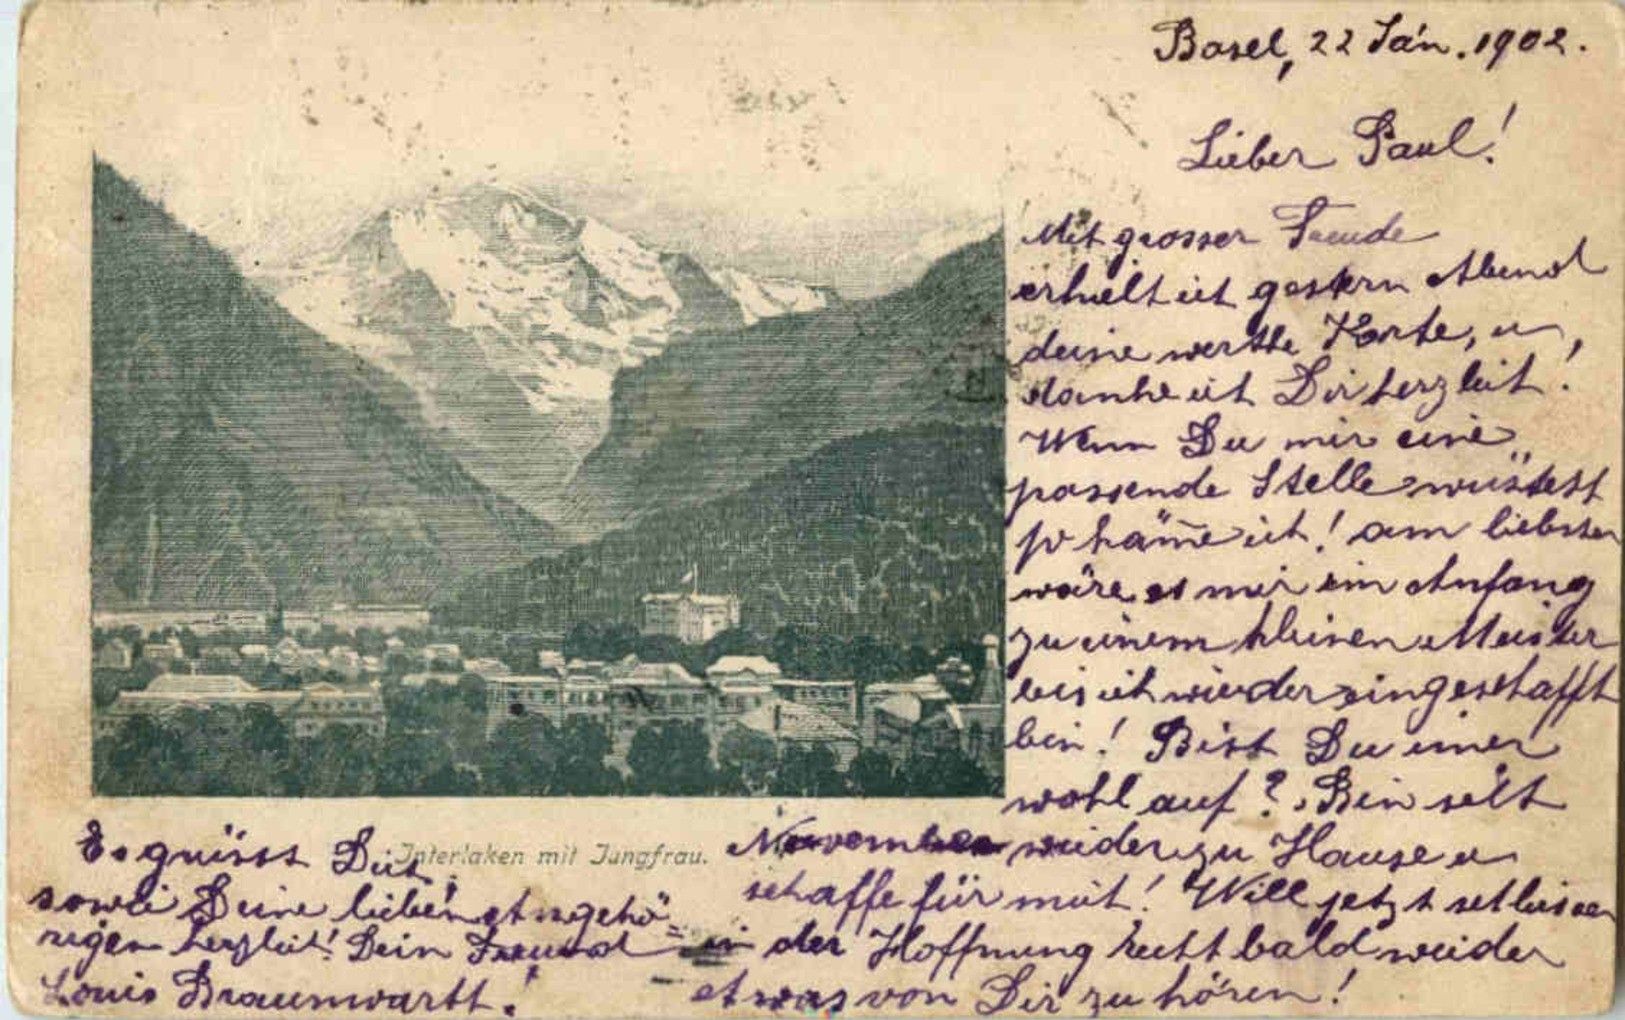 Basel, 22 Ján. 1902.
Lieber Paul!
Mit grosser Freude
erhielt ich gestern Abend
deine werthe Karte, u,
danke ich Dir herzlich!
Wenn Du mir eine
passende Stelle wüstest
so käme ich! am liebsten
wäre es mir ein Anfang
zu einem kleinen Meister
bis ich wieder eingeschafft
bin! Bist Du imer
wohl auf? Bin seit
November wieder zu Hause u
schaffe für mich! Will jetzt schliesen
in der Hoffnung recht bald wieder
etwas von Dir zu hören!
Es grüsst Dich
sowie Deine lieben Angehö=
rigen herzlich! Dein Freund
Louis Braunwarth!
Interlaken mit Jungfrau.